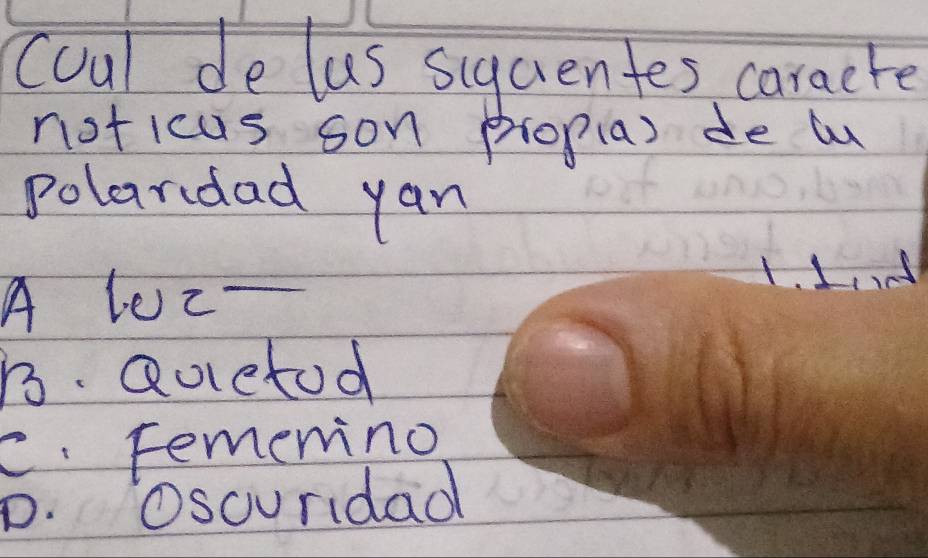 Cual de las siguientes caracte
risticas son propias de la
polaridad yan
A luz —
B. Quietud
C. Femenino
D. Oscuridad